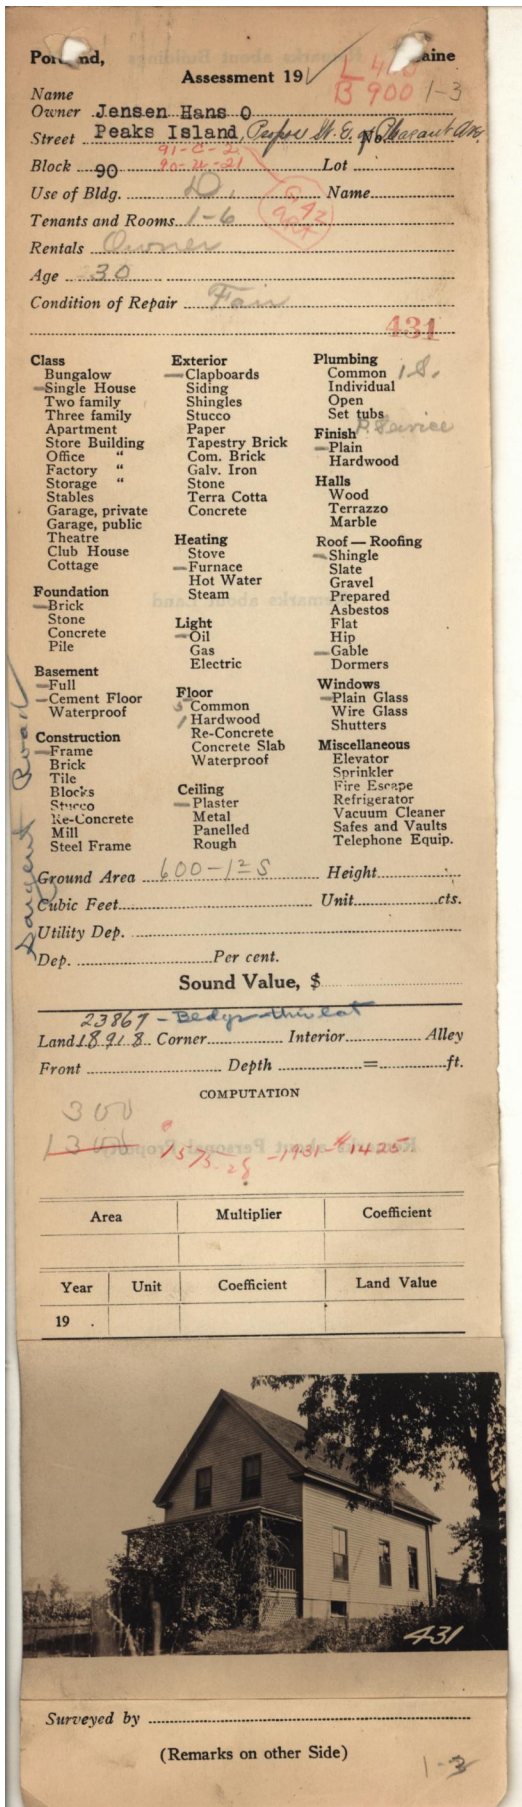 Portland, Maine
Assessment 19
L 400
B 900 1-3
Name
Owner Jensen Hans O
Street Peaks Island, No. Pleasant Ave.
91-C-2
Block 90 90-U-21 Lot
Use of Bldg. D. Name
Tenants and Rooms 1-6
Rentals Owner
Age 30
Condition of Repair Fair
431
Class
Bungalow
Single House
Two family
Three family
Apartment
Store Building
Office "
Factory "
Storage "
Stables
Garage, private
Garage, public
Theatre
Club House
Cottage
Foundation
Brick
Stone
Concrete
Pile
Basement
Full
Cement Floor
Waterproof
Construction
Frame
Brick
Tile
Blocks
Stucco
Re-Concrete
Mill
Steel Frame
Exterior
Clapboards
Siding
Shingles
Stucco
Paper
Tapestry Brick
Com. Brick
Galv. Iron
Stone
Terra Cotta
Concrete
Heating
Stove
Furnace
Hot Water
Steam
Light
Oil
Gas
Electric
Floor
5 Common
1 Hardwood
Re-Concrete
Concrete Slab
Waterproof
Ceiling
Plaster
Metal
Panelled
Rough
Plumbing
Common 1 S.
Individual
Open
Set tubs
P. Service
Finish
Plain
Hardwood
Halls
Wood
Terrazzo
Marble
Roof — Roofing
Shingle
Slate
Gravel
Prepared
Asbestos
Flat
Hip
Gable
Dormers
Windows
Plain Glass
Wire Glass
Shutters
Miscellaneous
Elevator
Sprinkler
Fire Escape
Refrigerator
Vacuum Cleaner
Safes and Vaults
Telephone Equip.
Sargent Road
Ground Area 600-1 2 S Height
Cubic Feet Unit cts.
Utility Dep.
Dep. Per cent.
Sound Value, $
23867 - Bldgs
Land 18918 Corner Interior Alley
Front Depth = ft.
COMPUTATION
300
1300 1575-28 -1931-$1425
Area Multiplier Coefficient
Year Unit Coefficient Land Value
19 .
431
Surveyed by
(Remarks on other Side)
1-3